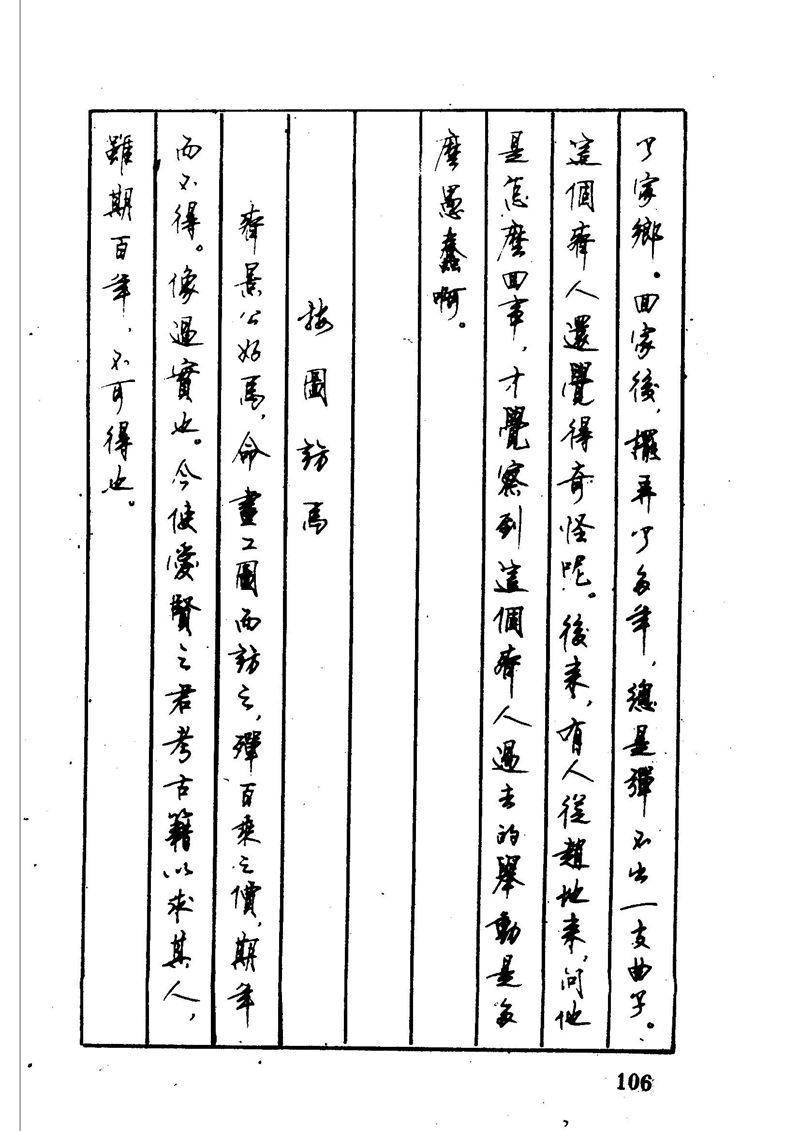 了家鄉。回家後，擺弄了多年，總是彈不出一支曲子。
這個齊人還覺得奇怪呢。後来，有人從趙地来，问他
是怎麽回事，才覺察到這個齊人過去的舉動是多
麽愚蠢啊。
按圖訪馬
齊景公好馬，命畫工圖而訪之，殫百乘之價，期年
而不得。像過實也。今使愛賢之君考古籍以求其人，
雖期百年，不可得也。
106